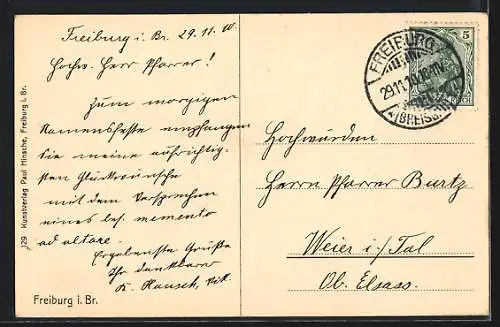 Freiburg i. Br. 29.11.10.
Hochw. Herr Pfarrer!
Zum morgigen
Namensfeste empfangen
Sie meine aufrichtig-
sten Glückwünsche
mit dem Versprechen
eines bes. memento
ad altare.
Ergebenste Grüße
Ihr dankbarer
K. Rausch,
Freiburg i. Br.
129 Kunstverlag Paul Hinsche, Freiburg i. Br.
FREIBURG
29.11.10
(BREISGAU)
5
Hochwürden
Herrn Pfarrer Burtz
Weier i./Tal
Ob. Elsass.